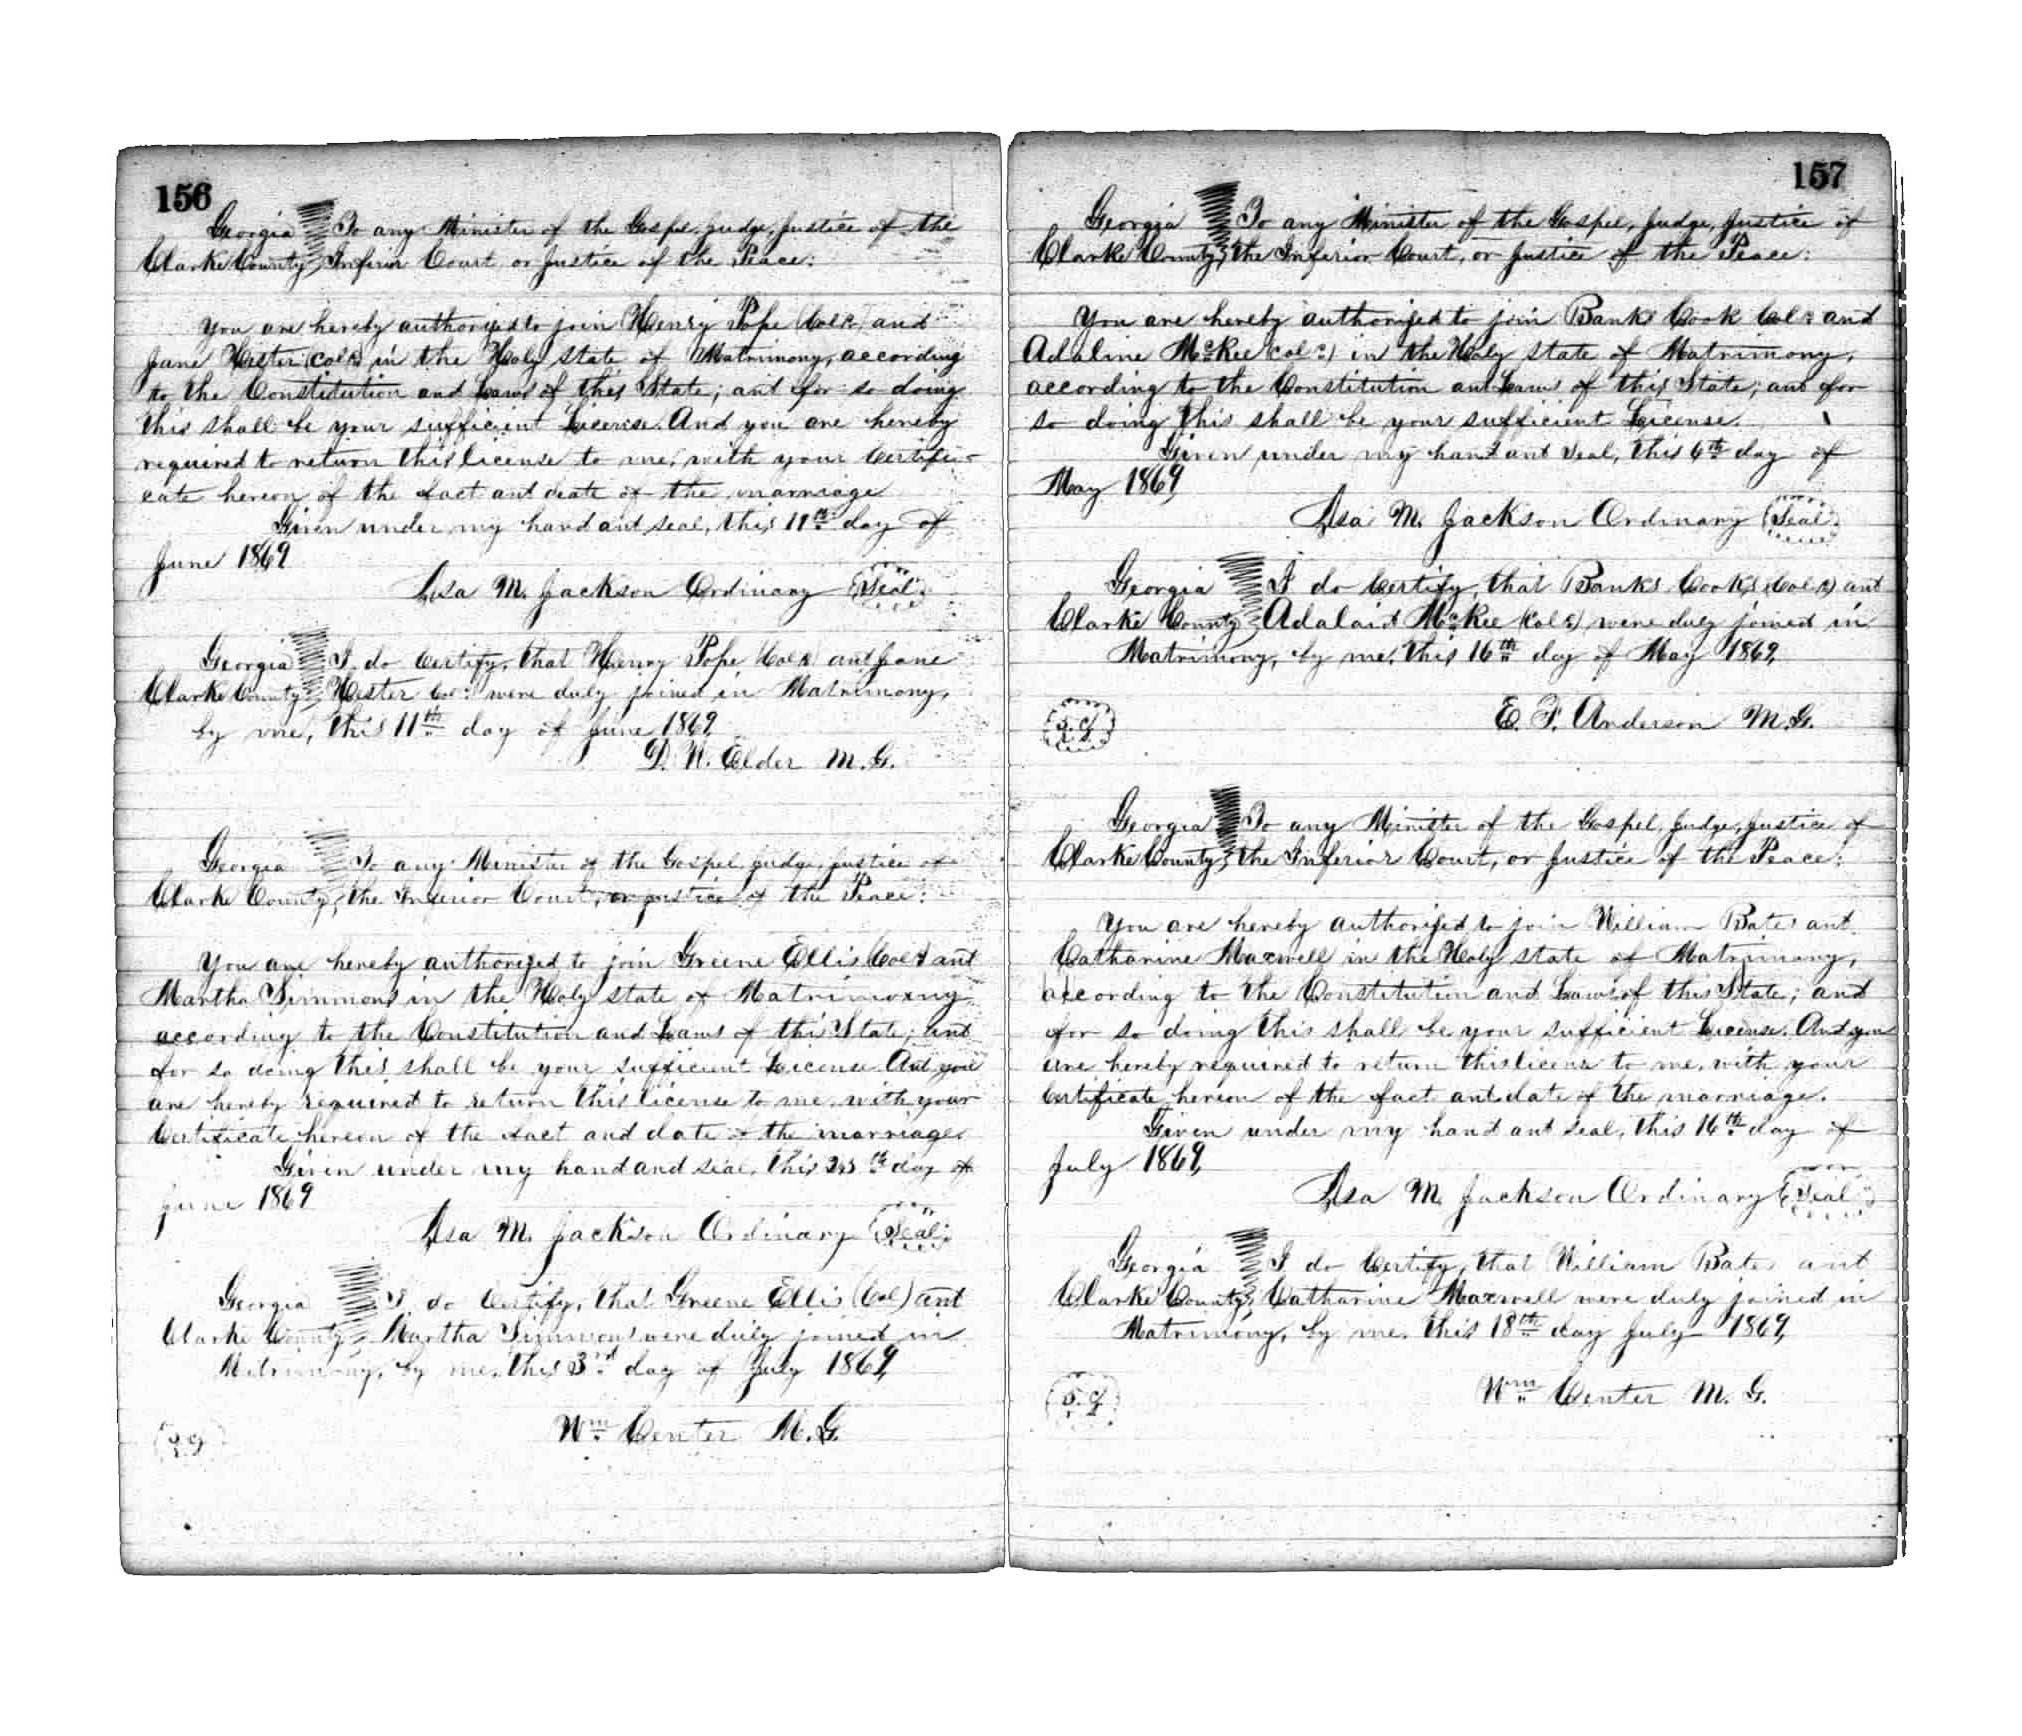 156
Georgia To any Minister of the Gospel, Judge, Justice of the
Clarke County, Inferior Court, or Justice of the Peace:
You are hereby authorized to join Henry Pope (Col.d) and
Jane Hester (Col.d) in the Holy state of Matrimony, according
to the Constitution and Laws of this State; and for so doing
this shall be your sufficient License. And you are hereby
required to return this license to me, with your Certifi-
cate hereon of the fact and date of the marriage
Given under my hand and seal, this 11th day of
June 1869
Asa M. Jackson Ordinary (Seal)
Georgia I do Certify, that Henry Pope (Col.d) and Jane
Clarke County Hester Col. were duly joined in Matrimony,
by me, this 11th day of June 1869
D. N. Elder M.G.
Georgia To any Minister of the Gospel, Judge, Justice of
Clarke County, the Inferior Court, or Justice of the Peace:
You are hereby authorized to join Greene Ellis (Col.d) and
Martha Simmons in the Holy state of Matrimony
according to the Constitution and Laws of this State; and
for so doing this shall be your sufficient License. And you
are hereby required to return this license to me, with your
Certificate hereon of the fact and date of the marriage
Given under my hand and seal, this 25th day of
June 1869
Asa M. Jackson Ordinary (Seal)
Georgia I do Certify, that Greene Ellis (Col) and
Clarke County, Martha Simmons were duly joined in
Matrimony, by me, this 3rd day of July 1869,
Wm Center M.G.
157
Georgia To any Minister of the Gospel, Judge, Justice of
Clarke County, the Inferior Court, or Justice of the Peace:
You are hereby authorized to join Banks Cook Col.d and
Adaline McKee (Col.d) in the Holy state of Matrimony,
according to the Constitution and Laws of this State; and for
so doing this shall be your sufficient License.
Given under my hand and Seal, this 6th day of
May 1869,
Asa M. Jackson Ordinary (Seal)
Georgia I do Certify, that Banks Cook (Col.d) and
Clarke County Adalaid McKee (Col.d) were duly joined in
Matrimony, by me, this 16th day of May 1869,
E. F. Anderson M.G.
Georgia To any Minister of the Gospel, Judge, Justice of
Clarke County, the Inferior Court, or Justice of the Peace:
You are hereby authorized to join William Bates and
Catharine Maxwell in the Holy state of Matrimony,
according to the Constitution and Laws of this State; and
for so doing this shall be your sufficient License. And you
are hereby required to return this licens to me, with your
Certificate hereon of the fact and date of the marriage.
Given under my hand and seal, this 16th day of
July 1869,
Asa M. Jackson Ordinary (Seal)
Georgia I do Certify, that William Bates and
Clarke County, Catharine Maxwell were duly joined in
Matrimony, by me, this 18th day July 1869,
Wm Center M.G.